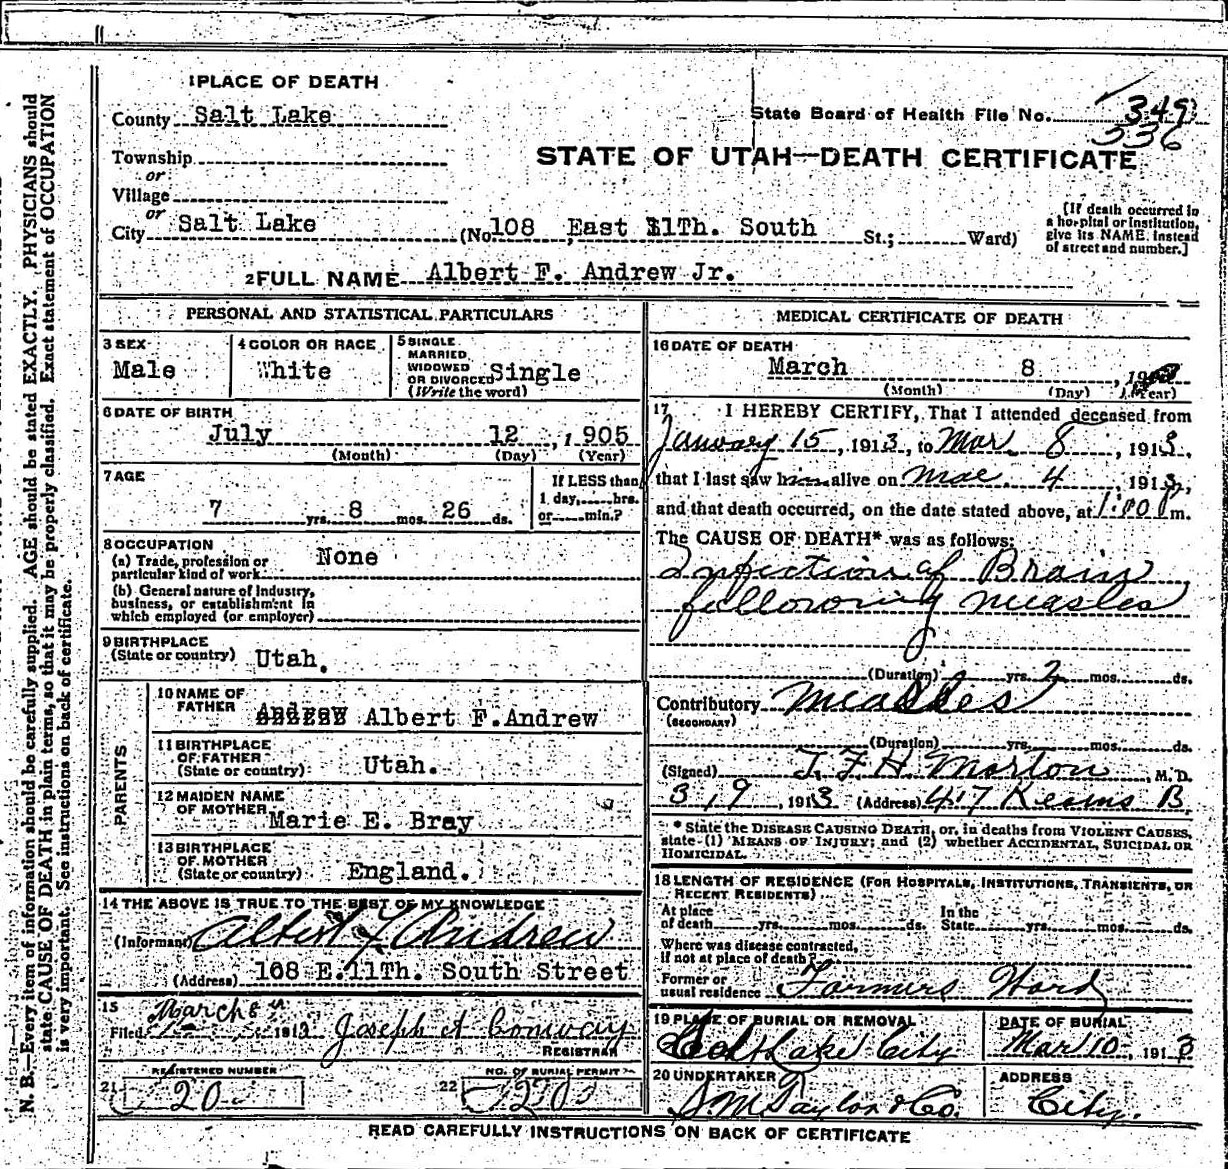 1 PLACE OF DEATH
County Salt Lake
State Board of Health File No. 349
336
Township
or
Village
or
STATE OF UTAH—DEATH CERTIFICATE
City Salt Lake (No. 108 East 11Th. South St.; Ward)
[If death occurred in
a hospital or institution,
give its NAME instead
of street and number.]
2 FULL NAME Albert F. Andrew Jr.
PERSONAL AND STATISTICAL PARTICULARS
3 SEX
Male
4 COLOR OR RACE
White
5 SINGLE
MARRIED
WIDOWED
OR DIVORCED Single
(Write the word)
6 DATE OF BIRTH
July 12, 1905
(Month) (Day) (Year)
7 AGE
7 yrs. 8 mos. 26 ds.
If LESS than
1 day, hrs.
or min.?
8 OCCUPATION
(a) Trade, profession or
particular kind of work None
(b) General nature of Industry,
business, or establishment in
which employed (or employer)
9 BIRTHPLACE
(State or country) Utah.
PARENTS
10 NAME OF
FATHER Albert F. Andrew
11 BIRTHPLACE
OF FATHER
(State or country) Utah.
12 MAIDEN NAME
OF MOTHER Marie E. Bray
13 BIRTHPLACE
OF MOTHER
(State or country) England.
14 THE ABOVE IS TRUE TO THE BEST OF MY KNOWLEDGE
(Informant) Albert F. Andrew
(Address) 108 E. 11Th. South Street
15
Filed March 8 1913 Joseph H Conway
REGISTRAR
21 REGISTERED NUMBER
20
22 NO. OF BURIAL PERMIT
MEDICAL CERTIFICATE OF DEATH
16 DATE OF DEATH
March 8, 19
(Month) (Day) (Year)
17 I HEREBY CERTIFY, That I attended deceased from
January 15, 1913, to Mar. 8, 1913,
that I last saw him alive on Mar. 4 1913,
and that death occurred, on the date stated above, at 1:00 P m.
The CAUSE OF DEATH* was as follows:
Infection of Brain
following measles
(Duration) yrs. 2 mos. ds.
Contributory Measles
(SECONDARY)
(Duration) yrs. mos. ds.
(Signed) T. F. H. Morton, M. D.
3/9, 1913 (Address) 417 Kearns B
* State the DISEASE CAUSING DEATH, or, in deaths from VIOLENT CAUSES,
state (1) MEANS OF INJURY; and (2) whether ACCIDENTAL, SUICIDAL OR
HOMICIDAL.
18 LENGTH OF RESIDENCE (FOR HOSPITALS, INSTITUTIONS, TRANSIENTS, OR
RECENT RESIDENTS)
At place
of death yrs. mos. ds.
In the
State yrs. mos. ds.
Where was disease contracted,
if not at place of death?
Former or
usual residence Farmers Ward
19 PLACE OF BURIAL OR REMOVAL
Salt Lake City
DATE OF BURIAL
Mar 10, 1913
20 UNDERTAKER
S. M. Taylor & Co.
ADDRESS
City.
READ CAREFULLY INSTRUCTIONS ON BACK OF CERTIFICATE
N. B.—Every item of information should be carefully supplied. AGE should be stated EXACTLY. PHYSICIANS should
state CAUSE OF DEATH in plain terms, so that it may be properly classified. Exact statement of OCCUPATION
is very important. See instructions on back of certificate.